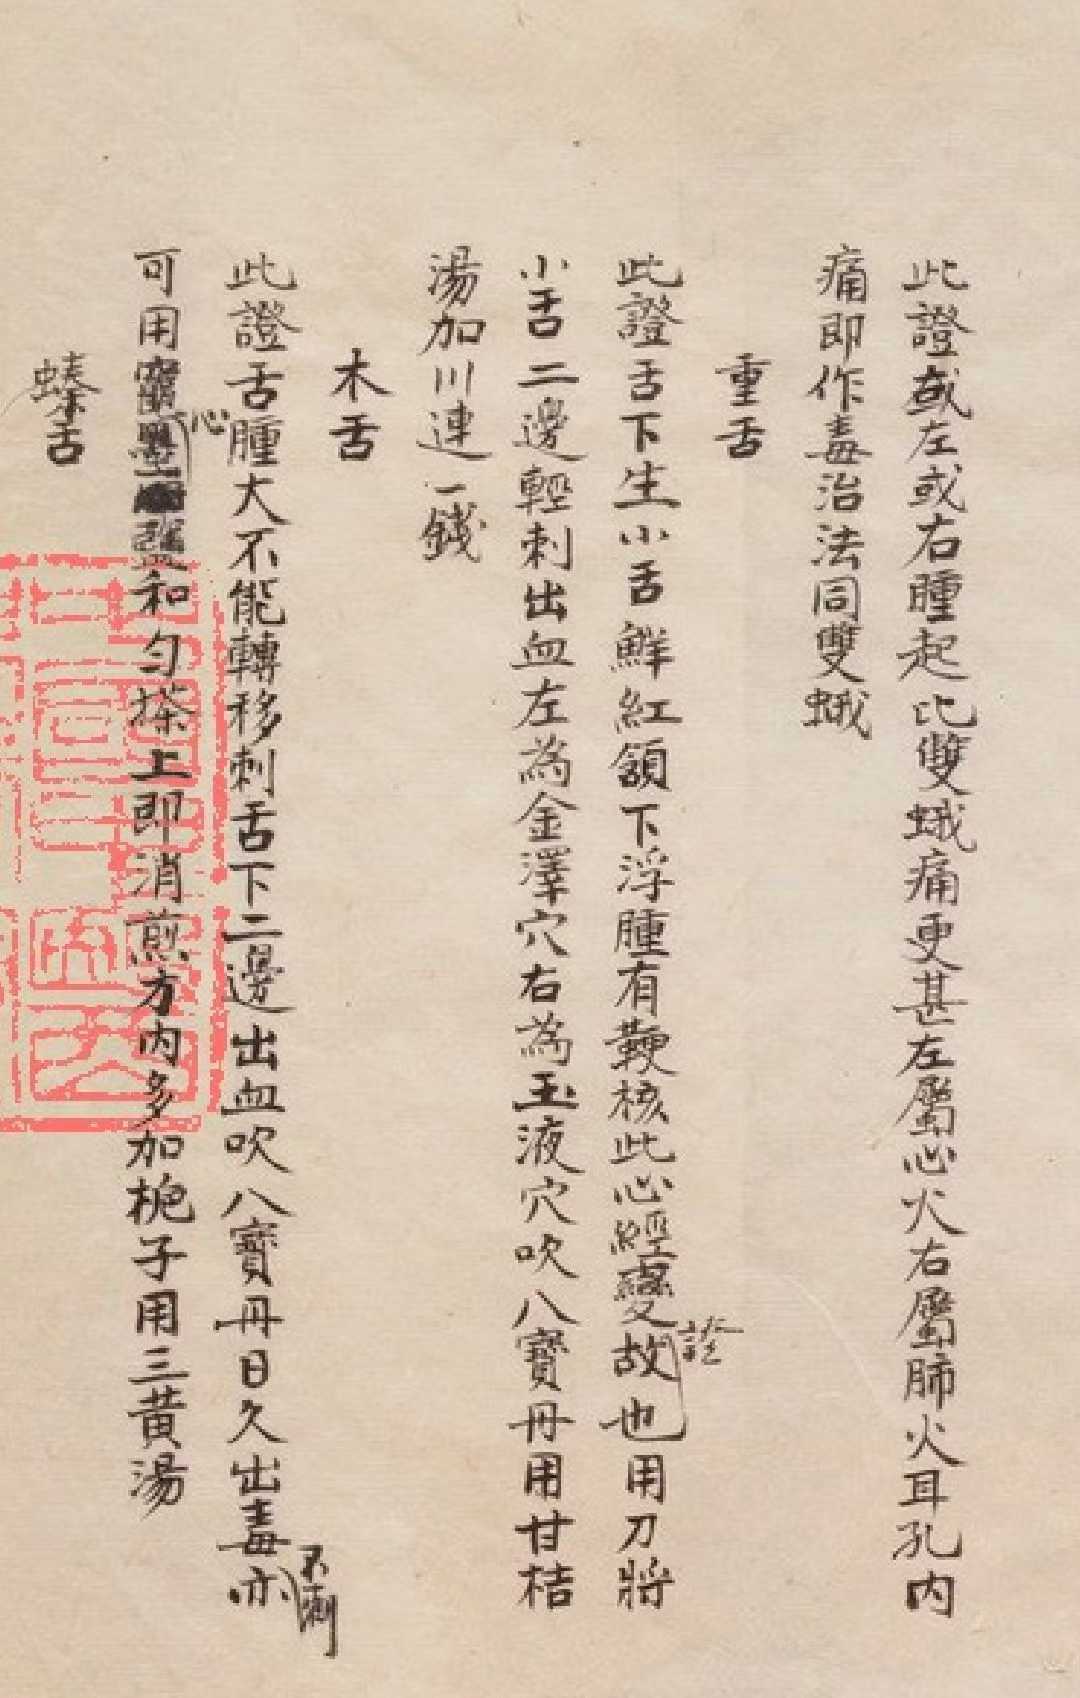 此證或左或右腫起比雙蛾痛更甚左屬心火右屬肺火耳孔内
痛即作毒治法同雙蛾
重舌
此證舌下生小舌鮮紅頷下浮腫有鞕核此心經變證故也用刀將
小舌二邊輕刺出血左為金澤穴右為玉液穴吹八寶丹用甘桔
湯加川連一錢
木舌
此證舌腫大不能轉移刺舌下二邊出血吹八寶丹日久出毒亦不
可用心鹽和勻搽上即消煎方内多加梔子用三黄湯
舌